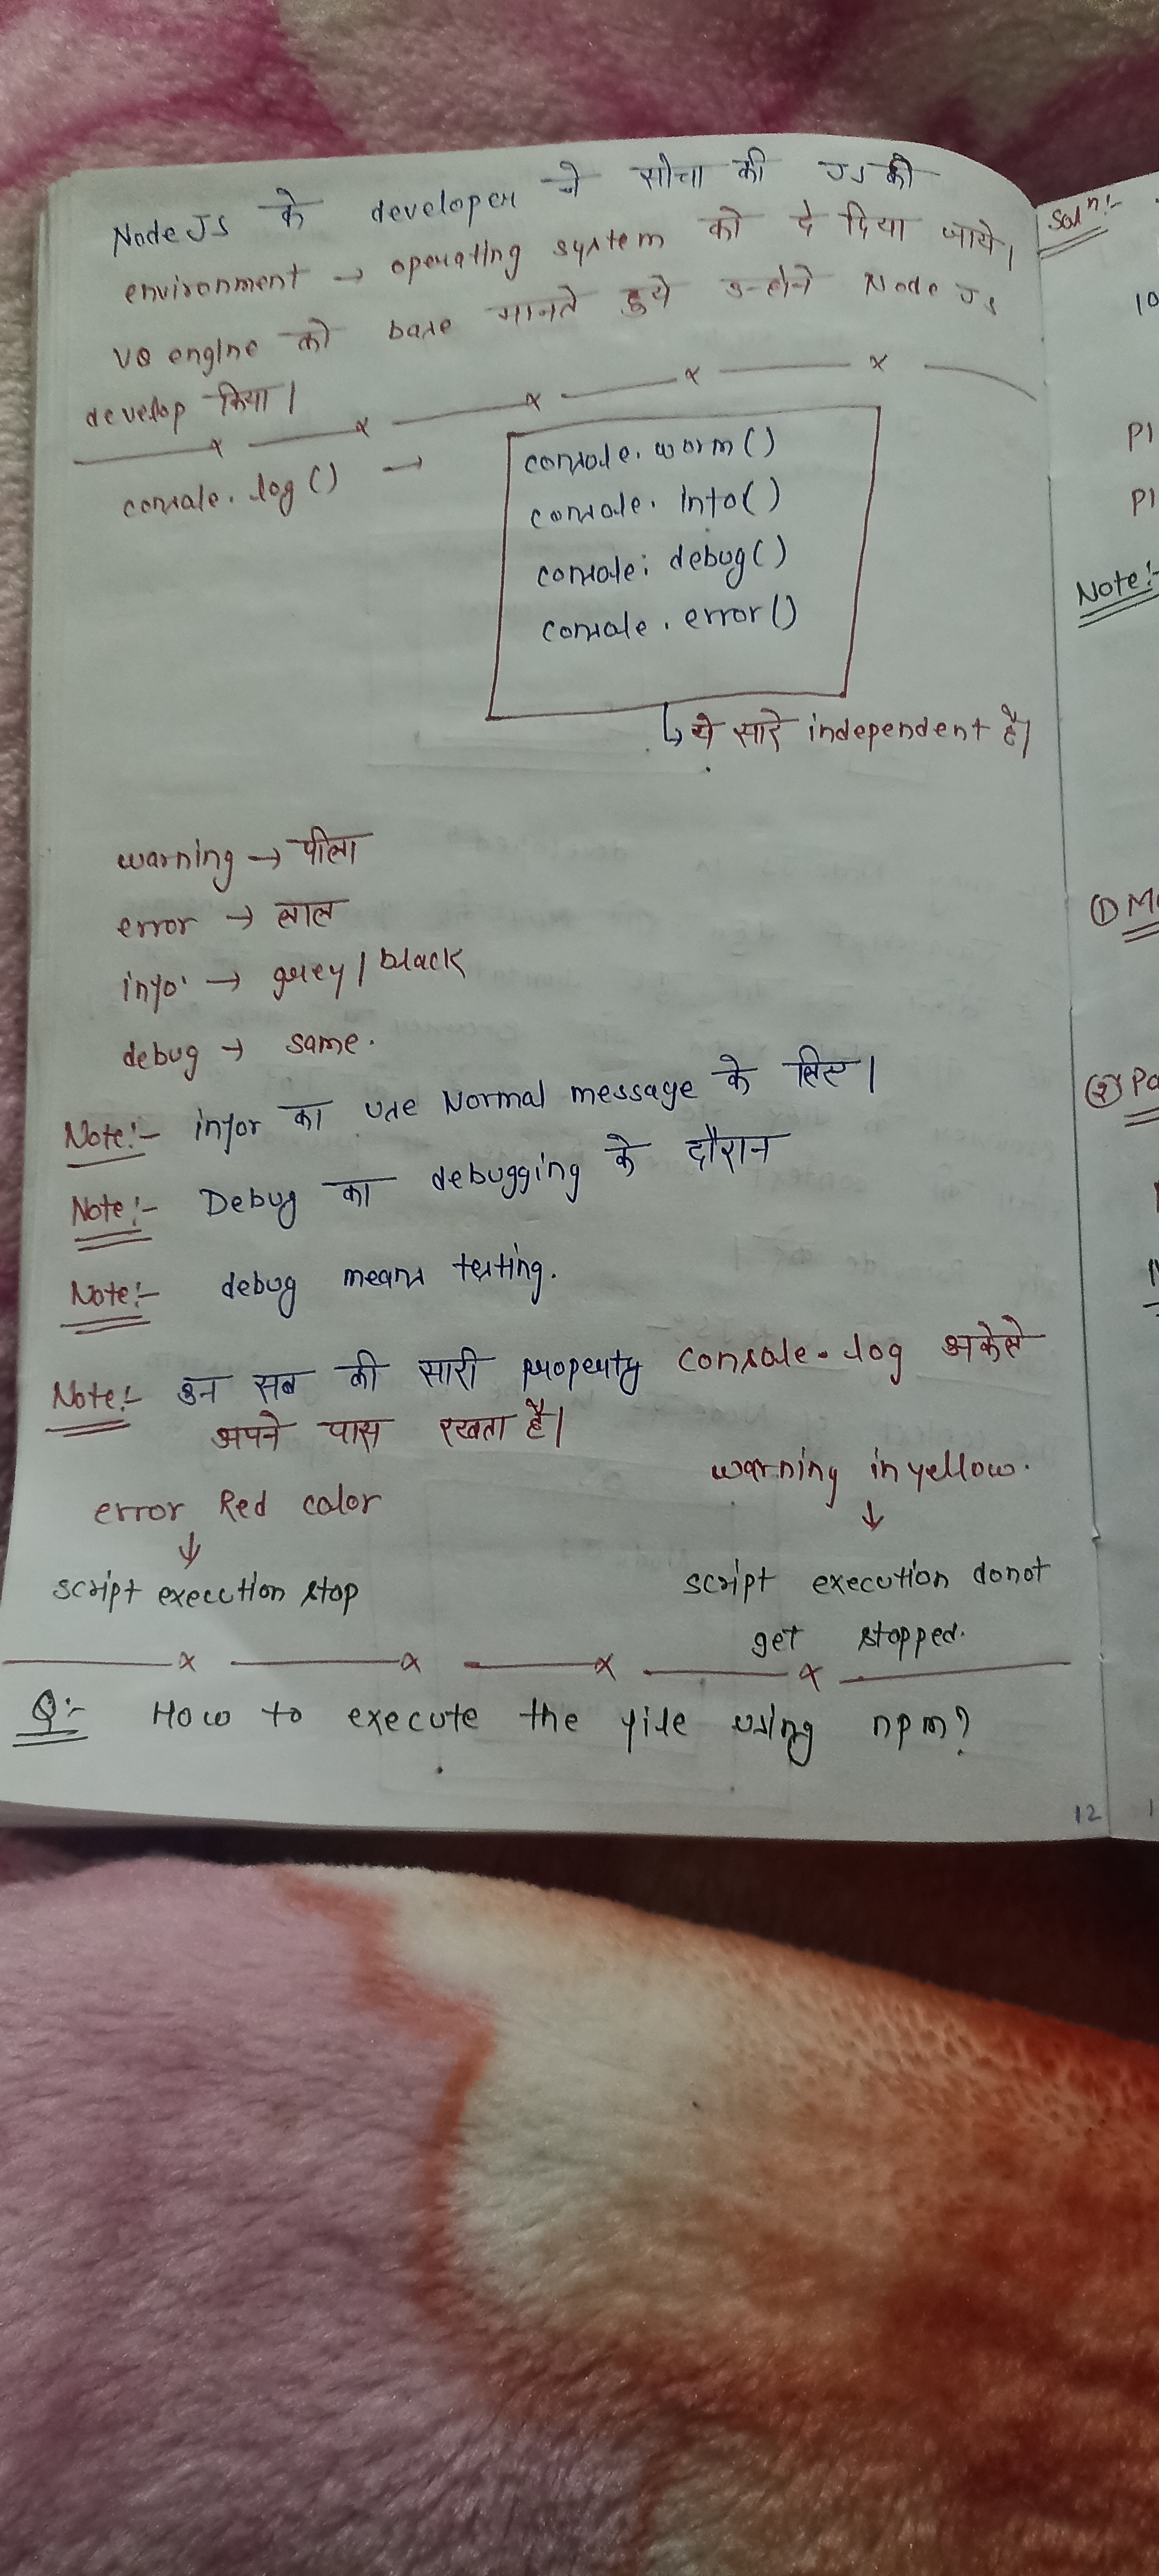 Node JS के developer ने सोचा की JS की
environment → operating system को दे दिया जाये।
V8 engine को base मानते हुये उन्होने Node JS
develop किया।
console. log() →
console. worm()
console. Info()
console: debug()
console. error()
↳ ये सारे independent है।
warning → पीला
error → लाल
info → grey / black
debug → same.
Note:- infor का use Normal message के लिए।
Note:- Debug का debugging के दौरान
Note:- debug means testing.
Note:- इन सब की सारी property console.log अकेले
अपने पास रखता है।
warning in yellow.
error Red color
↓
↓
script execution stop
script execution donot
get stopped.
Q:- How to execute the file using npm?
12
Solⁿ:-
10
Pl
Pl
Note:-
① M
② Pa